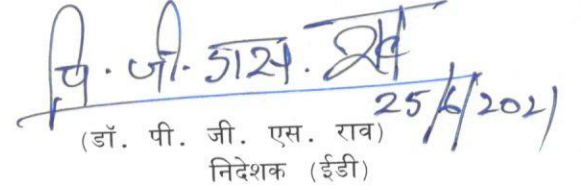 पि. जी. एस. राव
25/6/2021
(डॉ. पी. जी. एस. राव)
निदेशक (ईडी)